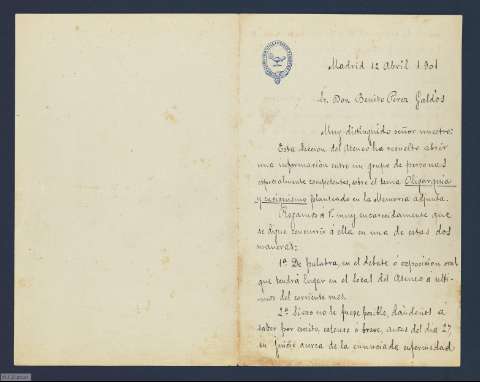 Madrid 12 Abril 1901
Sr. Don Benito Pérez Galdós
Muy distinguido señor nuestro:
Esta Sección del Ateneo ha resuelto abrir
una información entre un grupo de personas
especialmente competentes, sobre el tema Oligarquía
y caciquismo planteado en la Memoria adjunta.
Rogamos á V. muy encarecidamente que
se digne concurrir á ella en una de estas dos
maneras:
1ª De palabra, en el debate ó exposición oral
que tendrá lugar en el local del Ateneo a últi-
mos del corriente mes.
2ª Si eso no le fuese posible, dándonos á
saber por escrito, extenso ó breve, antes del día 27,
su juicio acerca de la enunciada enfermedad